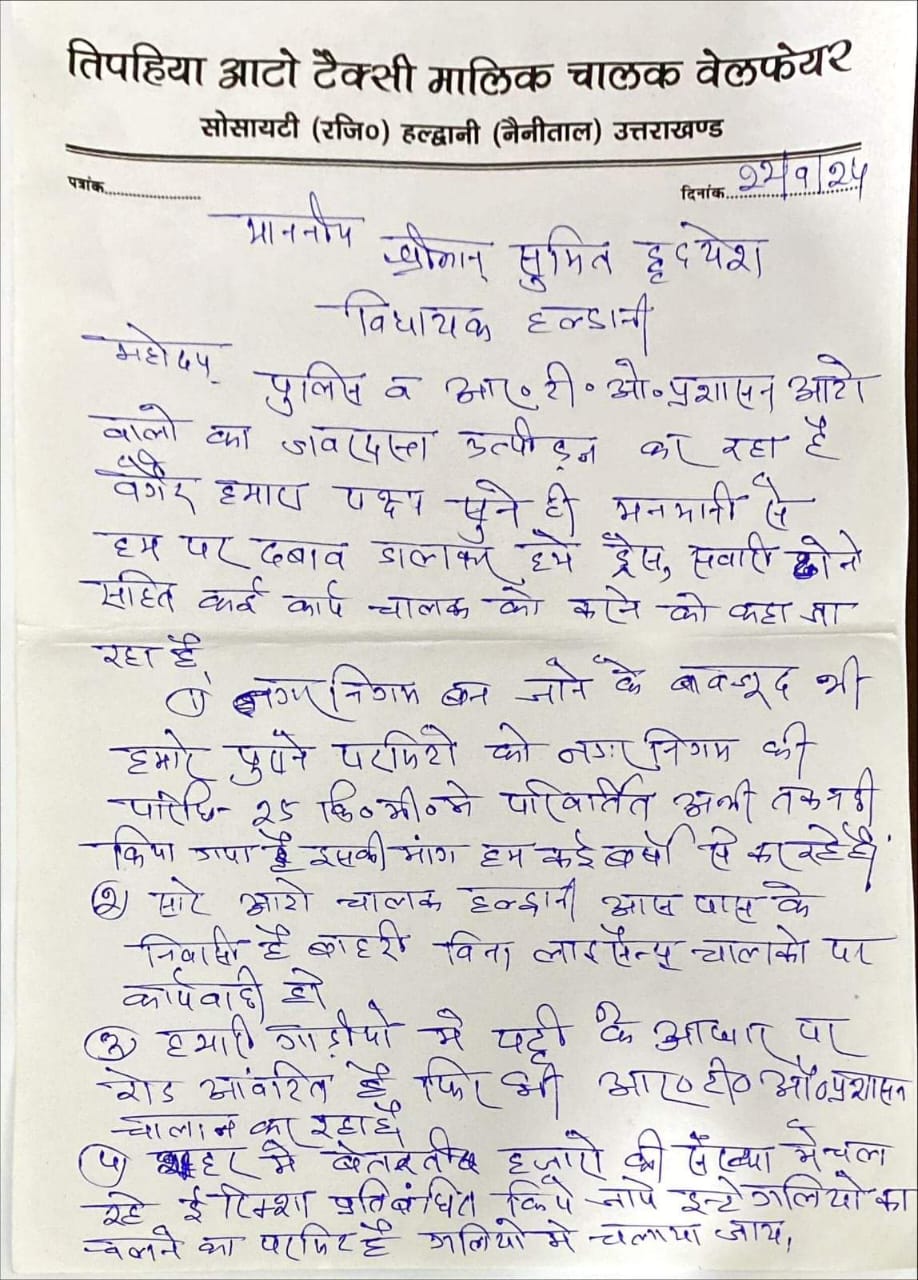 तिपहिया आटो टैक्सी मालिक चालक वेलफेयर
सोसायटी (रजि०) हल्द्वानी (नैनीताल) उत्तराखण्ड
पत्रांक....................
दिनांक 22/9/25
माननीय
श्रीमान् सुमित हृदयेश
विधायक हल्द्वानी
महोदय
पुलिस व आर०टी०ओ० प्रशासन आटो
वालो का जबरदस्त उत्पीड़न कर रहा है
वगैर हमारा पक्ष सुने ही मनमानी से
हम पर दबाव डालकर हमे ड्रैस, सवारी ढोने
सहित कई कार्य चालक को करने को कहा जा
रहा है
१) नगर निगम बन जाने के बावजूद भी
हमारे पुराने परमिटो को नगर निगम की
परिधि- २५ कि०मी० मे परिवर्तित अभी तक नही
किया गया है इसकी मांग हम कई बर्षो से कर रहे है।
२) सारे आटो चालक हल्द्वानी आस पास के
निवासी है बाहरी विना लाइसैन्स चालको पर
कार्यवाही हो
३) हमारी गाड़ीयो मे पट्टी के आधार पर
रोड आंवटित है फिर भी आर०टी०ओ० प्रशासन
चालान कर रहा है
४) शहर मे बेतरतीब हजारो की संख्या मे चल
रहे ई रिक्शा प्रतिबंधित किये जाये इन्हे गलियो का
चलने का परमिट है गलियो मे चलाया जाय।